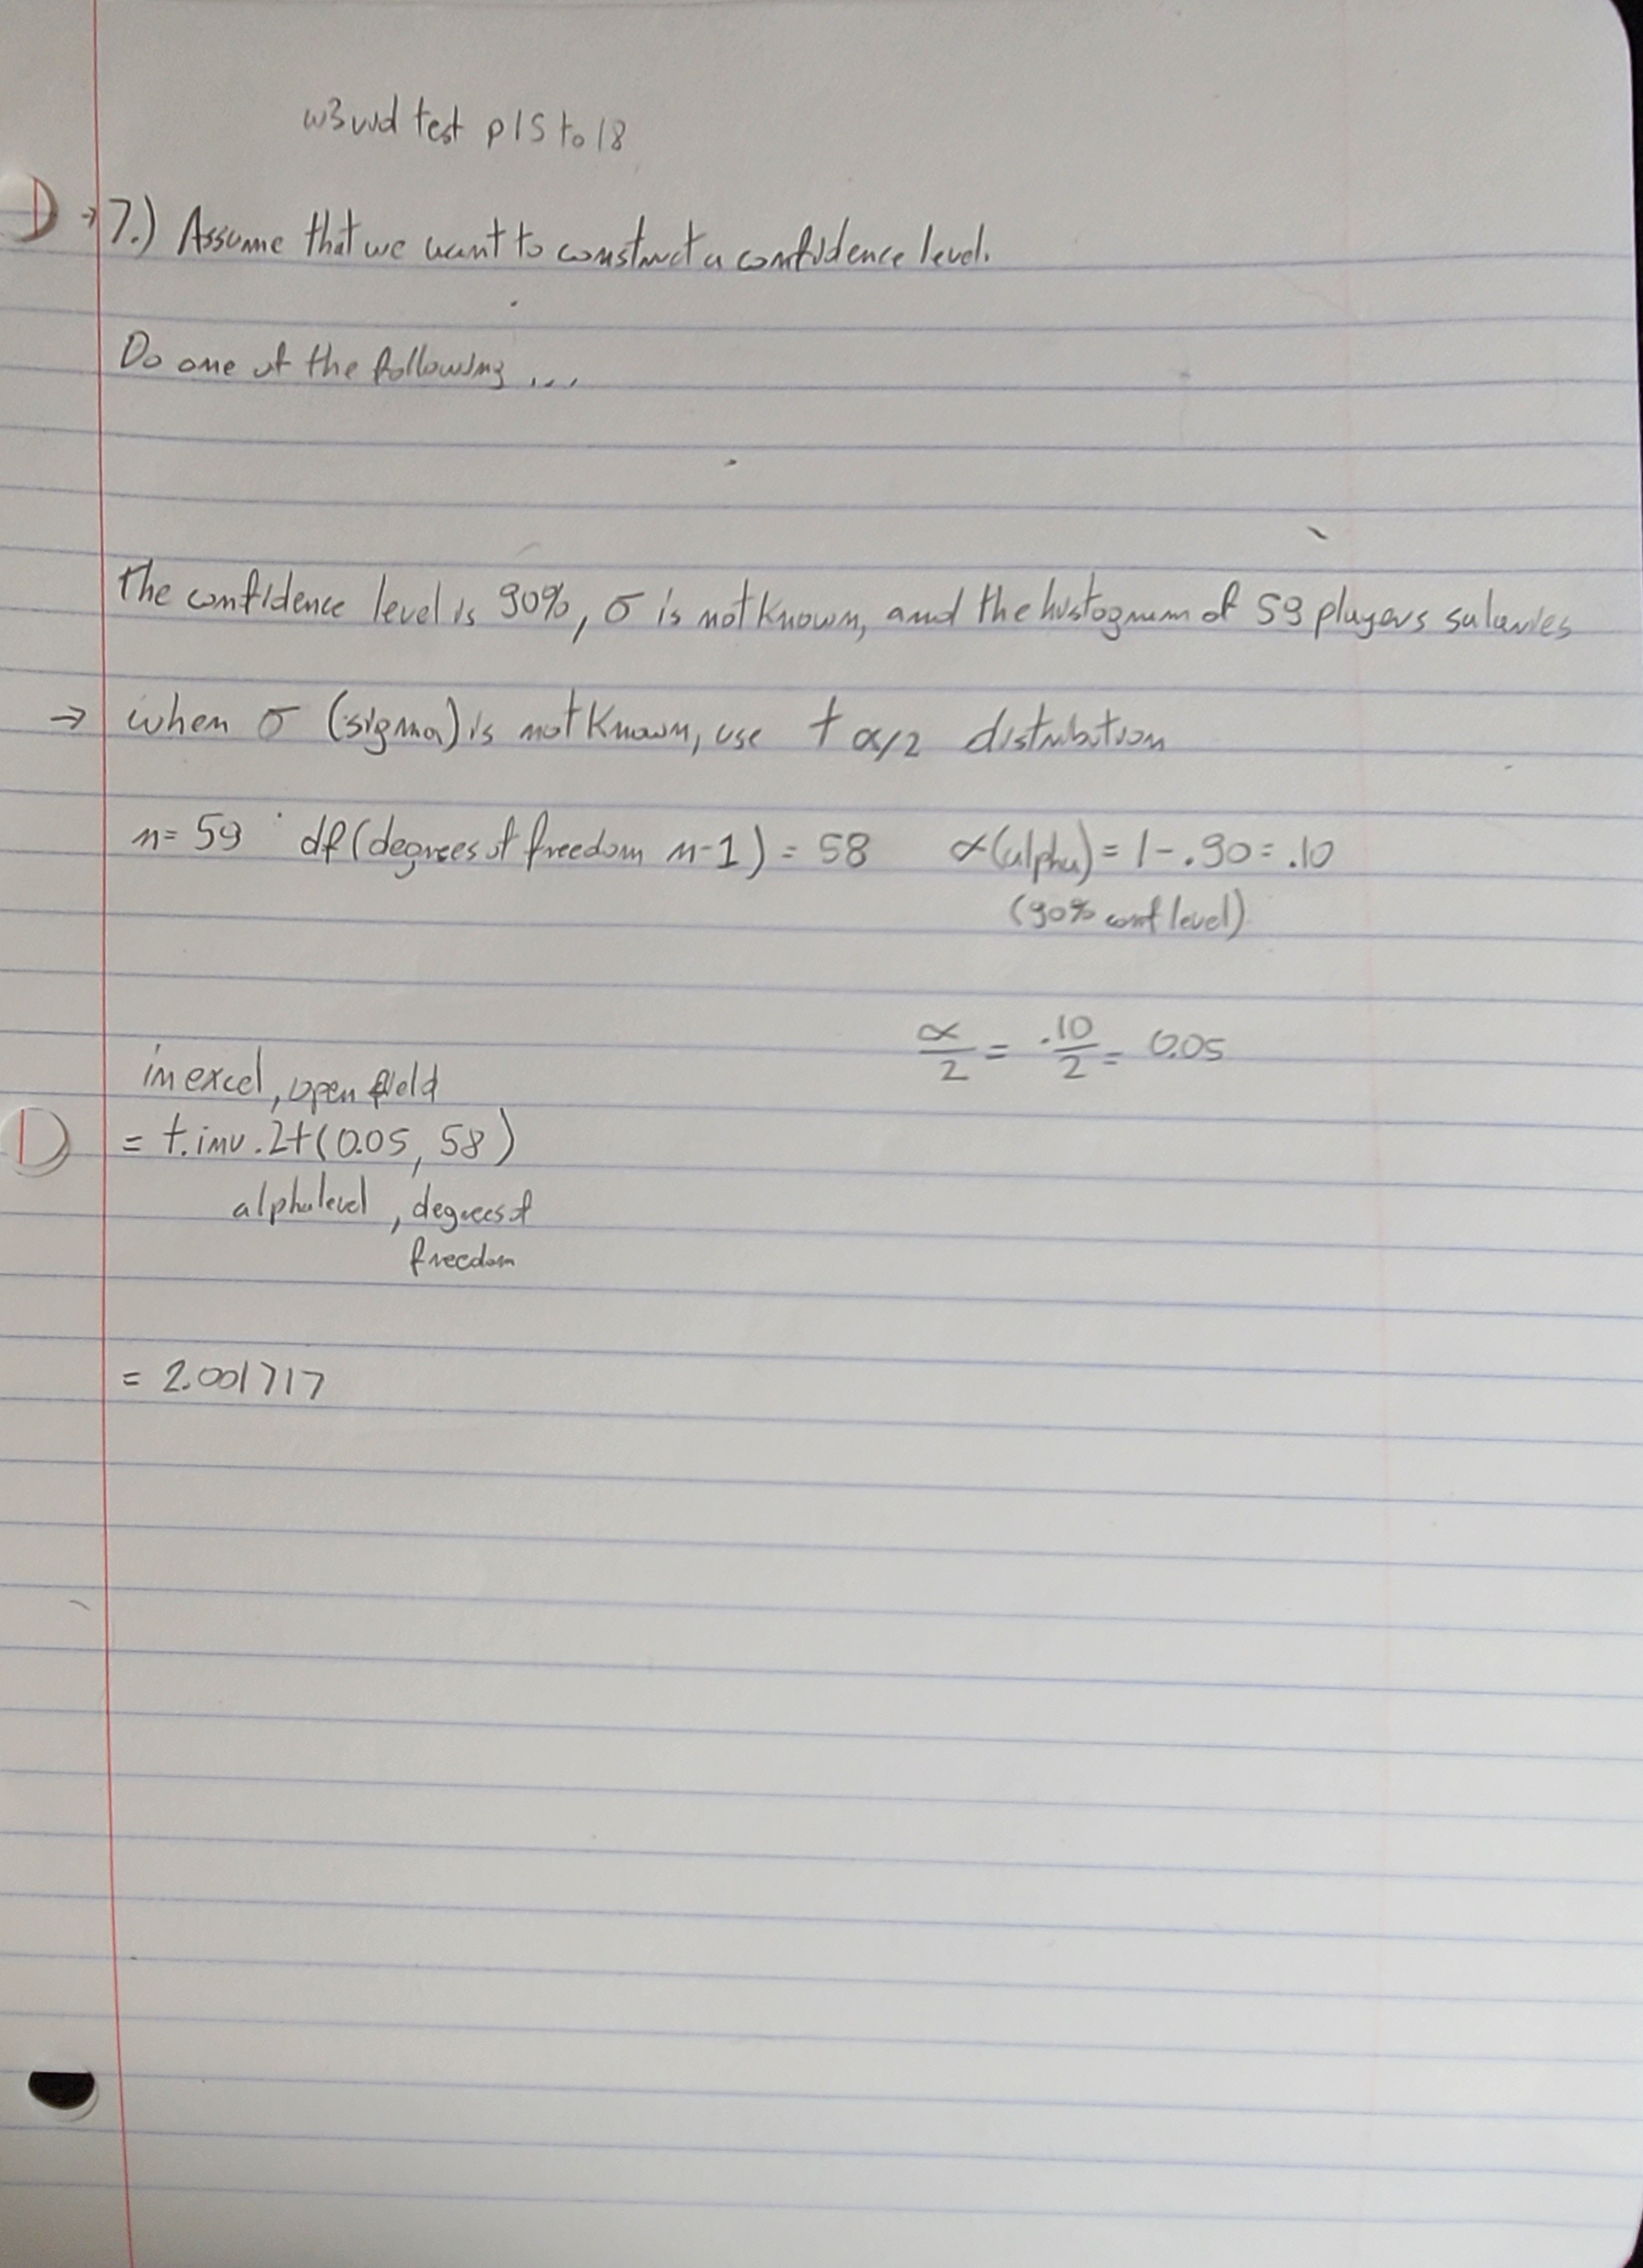 w3vvd test p15 to 18
→ 7.) Assume that we want to construct a confidence level.
Do one of the following ...
The confidence level is 90%, σ is not known, and the histogram of 59 players salaries
→ when σ (sigma) is not known, use t α/2 distribution
n = 59 df (degrees of freedom n-1) = 58 α(alpha) = 1 - .90 = .10
(90% conf level)
α/2 = .10/2 = 0.05
in excel, open field
= t.inv.2t(0.05, 58)
alpha level, degrees of
freedom
= 2.001717